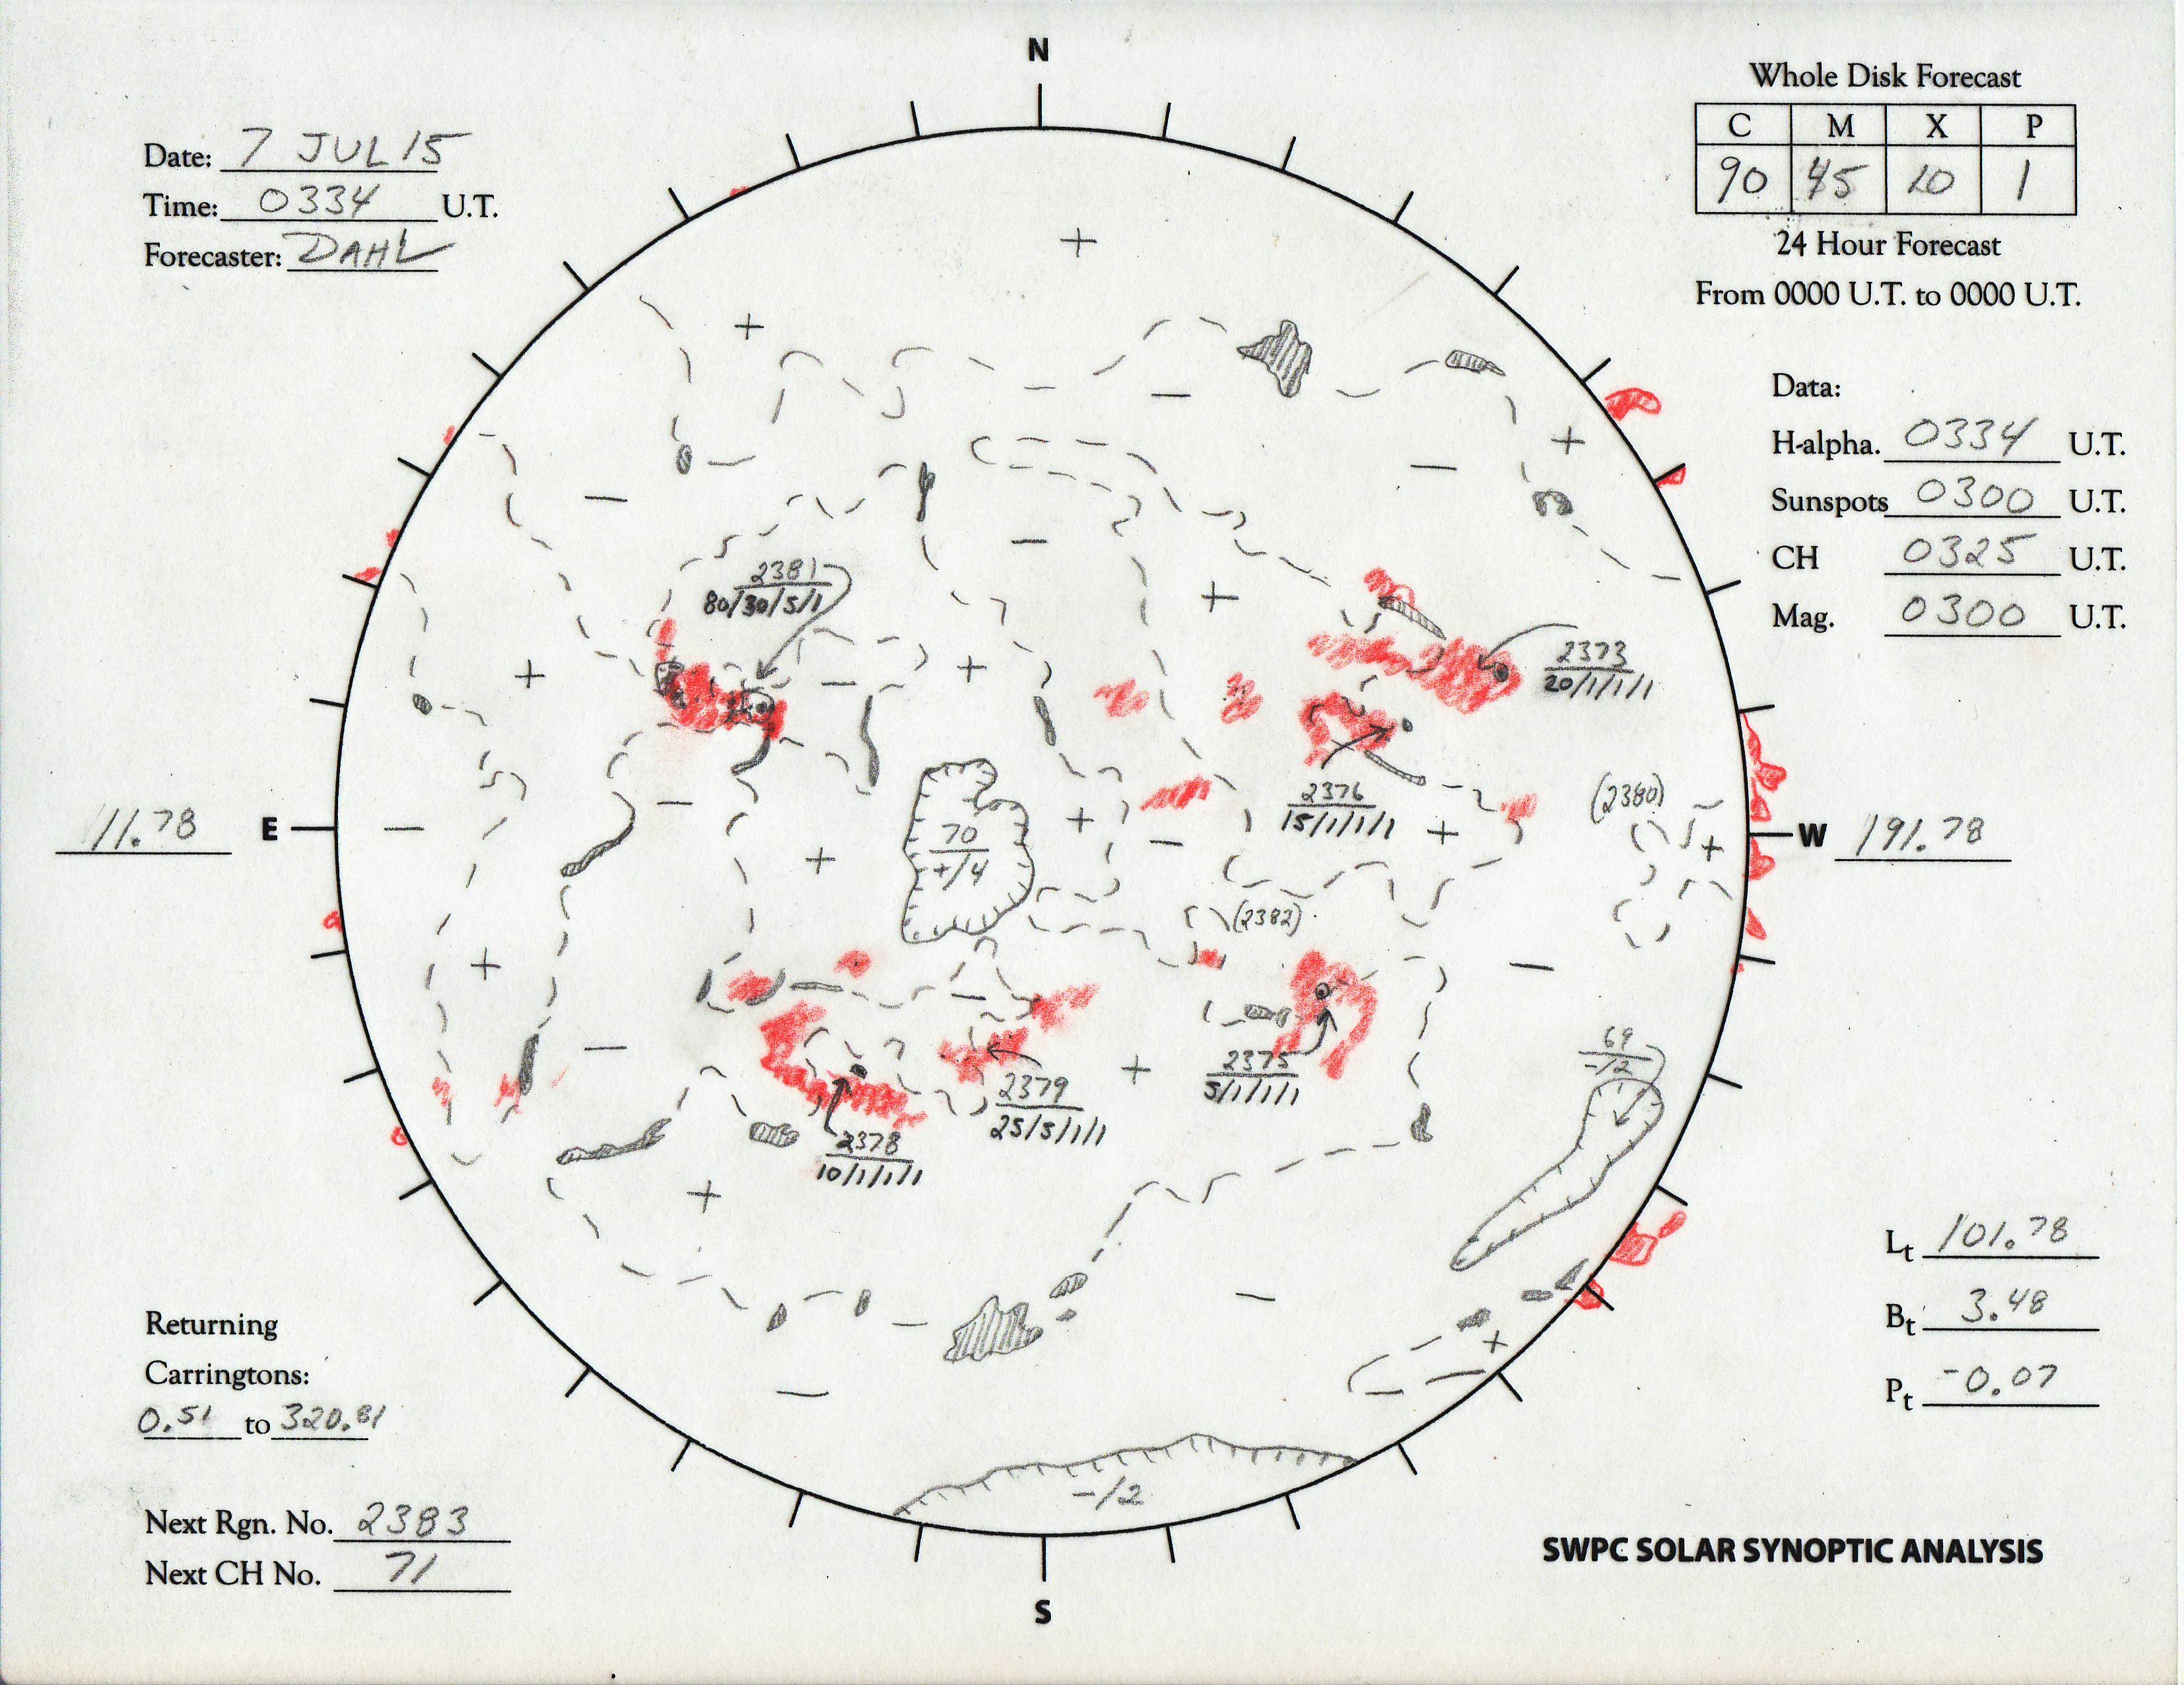 N
Date: 7 JUL 15
Time: 0334 U.T.
Forecaster: DAHL
Whole Disk Forecast
C M X P
90 45 10 1
24 Hour Forecast
From 0000 U.T. to 0000 U.T.
Data:
H-alpha. 0334 U.T.
Sunspots 0300 U.T.
CH 0325 U.T.
Mag. 0300 U.T.
2381
80/30/5/1
2373
20/1/1/1
2376
15/1/1/1
(2380)
11.78 E
W 191.78
70
+/4
(2382)
69
-/2
2375
5/1/1/1
2379
25/5/1/1
2378
10/1/1/1
Lt 101.78
Bt 3.48
Pt -0.07
Returning
Carringtons:
0.51 to 320.81
-/2
Next Rgn. No. 2383
Next CH No. 71
SWPC SOLAR SYNOPTIC ANALYSIS
S